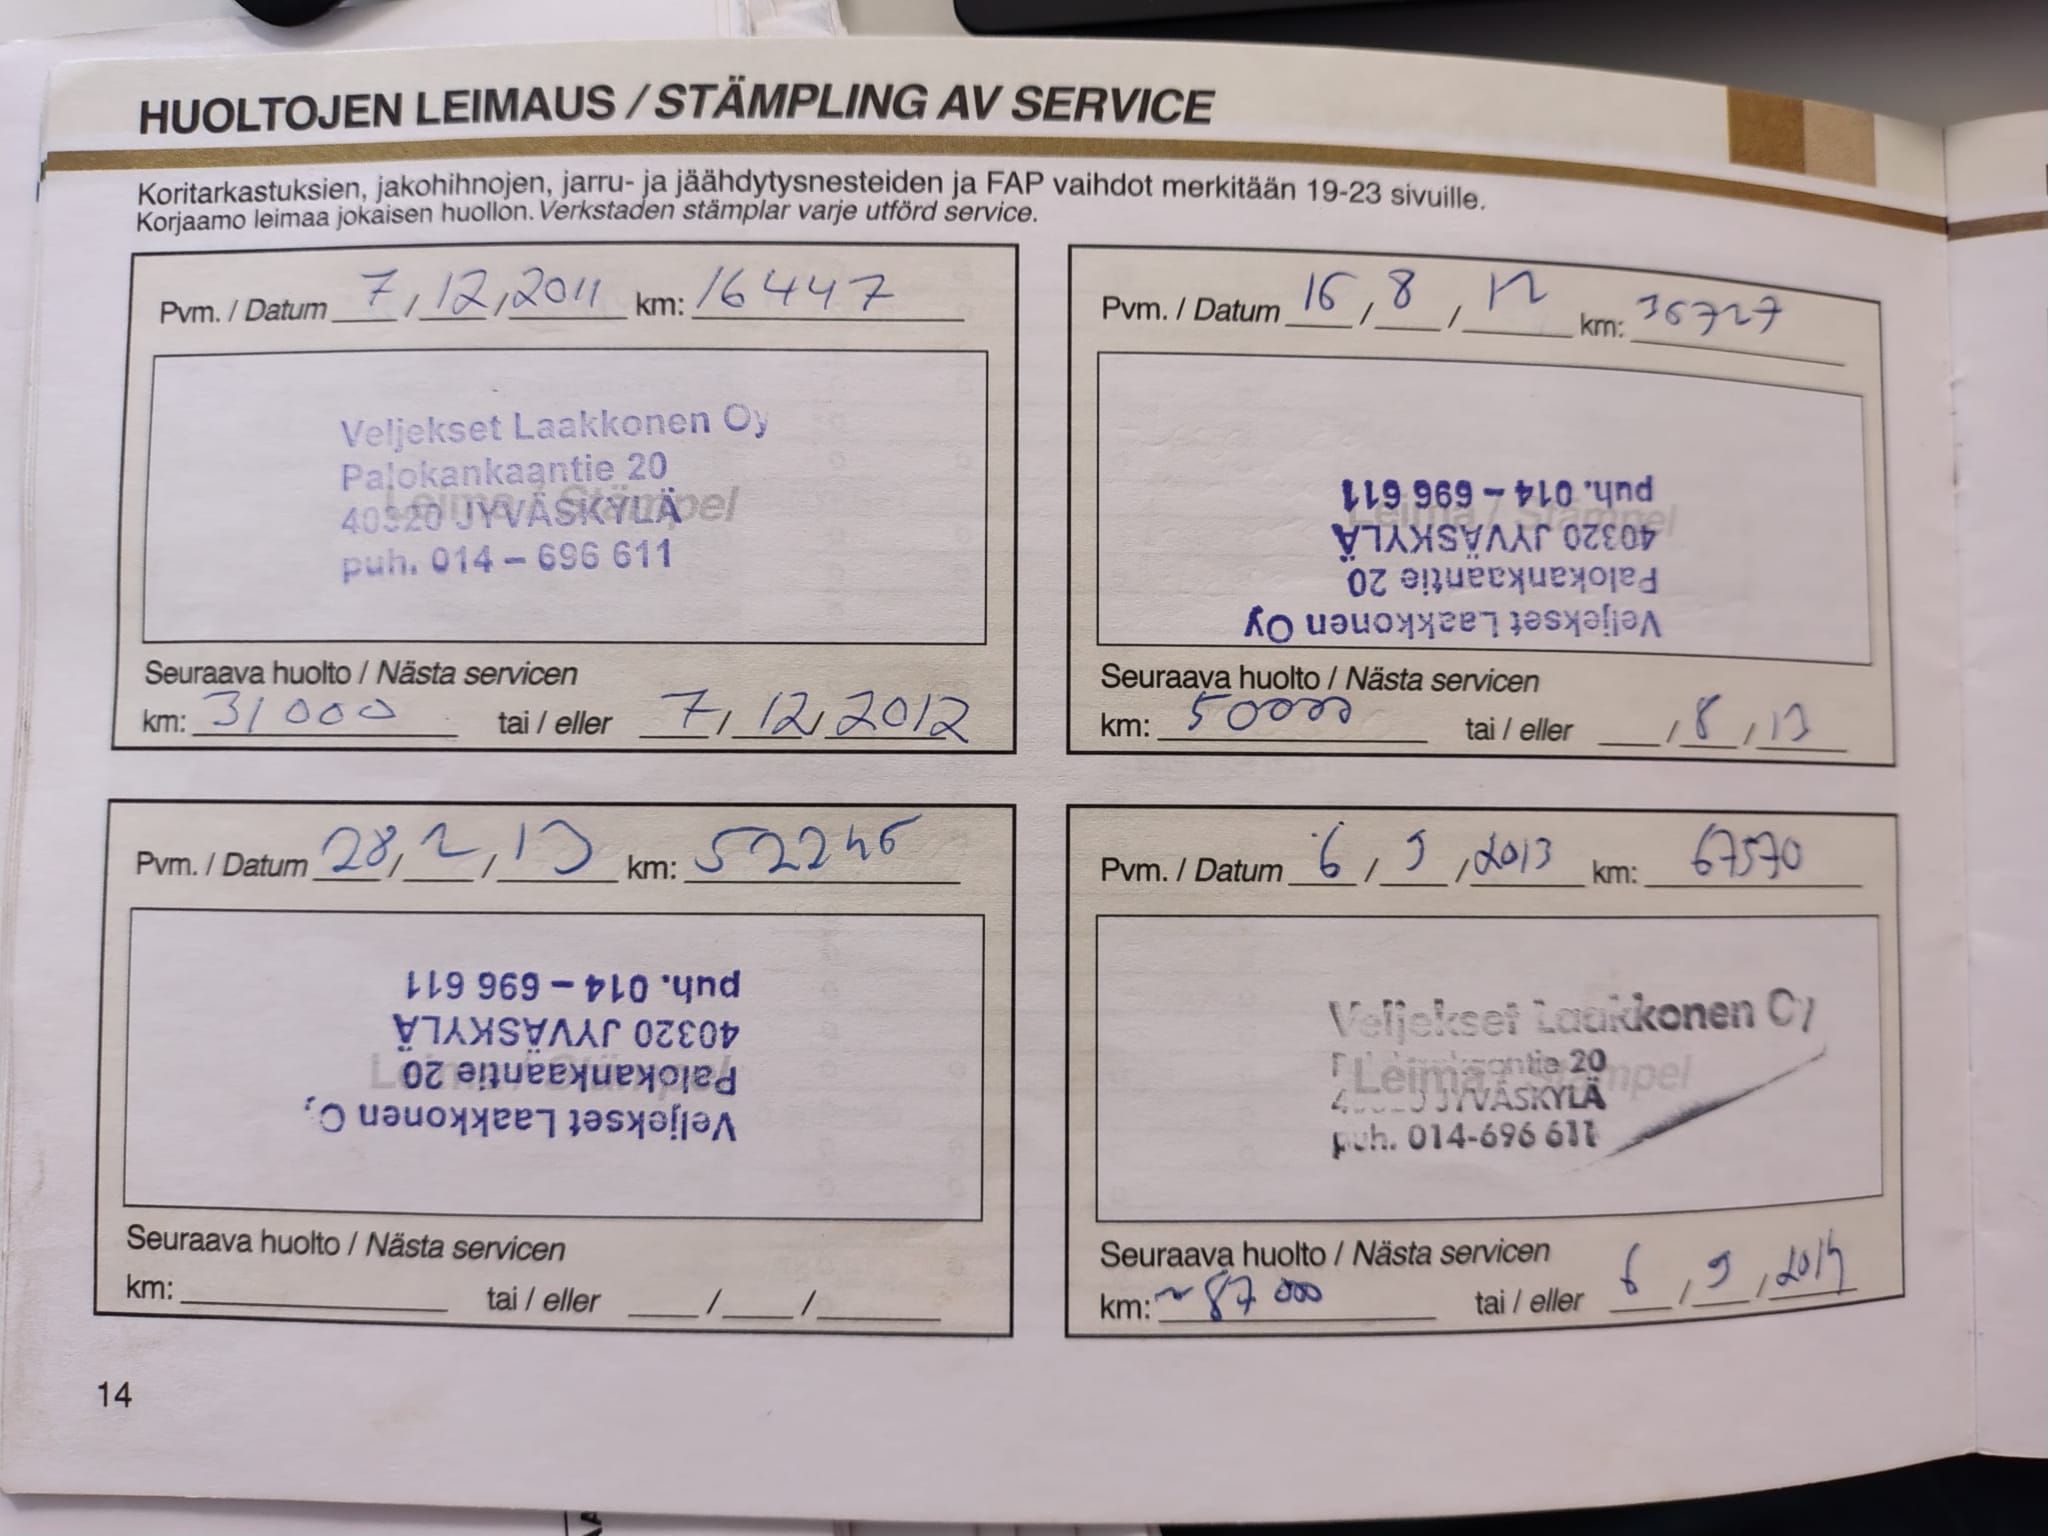 HUOLTOJEN LEIMAUS / STÄMPLING AV SERVICE
Koritarkastuksien, jakohihnojen, jarru- ja jäähdytysnesteiden ja FAP vaihdot merkitään 19-23 sivuille.
Korjaamo leimaa jokaisen huollon. Verkstaden stämplar varje utförd service.
Pvm. / Datum 7 / 12 / 2011 km: 16447
Leima / Stämpel
Veljekset Laakkonen Oy
Palokankaantie 20
40320 JYVÄSKYLÄ
puh. 014 – 696 611
Seuraava huolto / Nästa servicen
km: 31000 tai / eller 7 / 12 / 2012
Pvm. / Datum 16 / 8 / 12 km: 36727
Leima / Stämpel
Veljekset Laakkonen Oy
Palokankaantie 20
40320 JYVÄSKYLÄ
puh. 014 – 696 611
Seuraava huolto / Nästa servicen
km: 50000 tai / eller / 8 / 13
Pvm. / Datum 28 / 2 / 13 km: 52246
Leima / Stämpel
Veljekset Laakkonen O
Palokankaantie 20
40320 JYVÄSKYLÄ
puh. 014 – 696 611
Seuraava huolto / Nästa servicen
km: tai / eller / /
Pvm. / Datum 6 / 9 / 2013 km: 67570
Leima / Stämpel
Veljekset Laakkonen Oy
20
JYVÄSKYLÄ
puh. 014-696 611
Seuraava huolto / Nästa servicen
km: ~ 87 000 tai / eller 6 / 9 / 2014
14